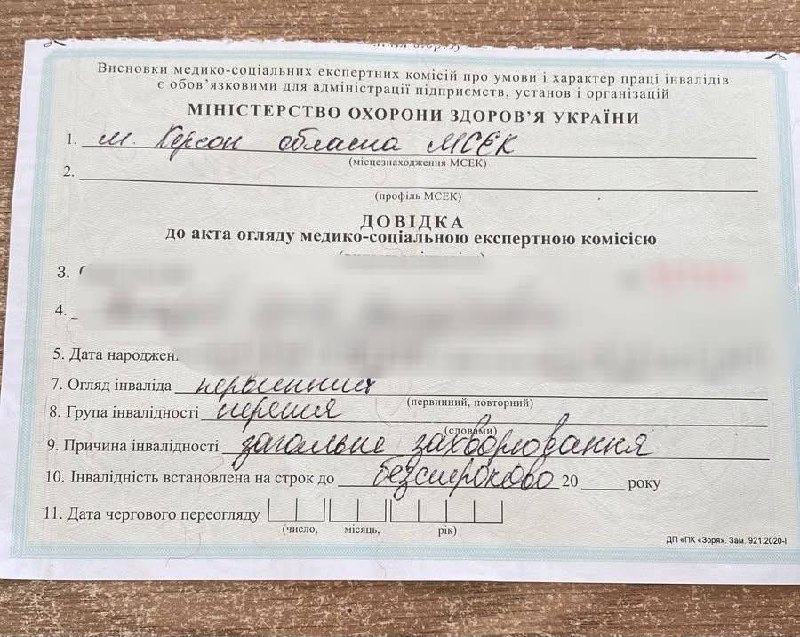 Висновки медико-соціальних експертних комісій про умови і характер праці інвалідів
є обов'язковими для адміністрації підприємств, установ і організацій
МІНІСТЕРСТВО ОХОРОНИ ЗДОРОВ'Я УКРАЇНИ
1. м. Херсон обласна МСЕК
(місцезнаходження МСЕК)
2.
(профіль МСЕК)
ДОВІДКА
до акта огляду медико-соціальною експертною комісією
3.
4.
5. Дата народжен
7. Огляд інваліда первинний
(первинний, повторний)
8. Група інвалідності перша
(словами)
9. Причина інвалідності загальне захворювання
10. Інвалідність встановлена на строк до безстроково 20 року
11. Дата чергового переогляду
(число, місяць, рік)
ДП «ПК «Зоря». Зам. 921.2020-І